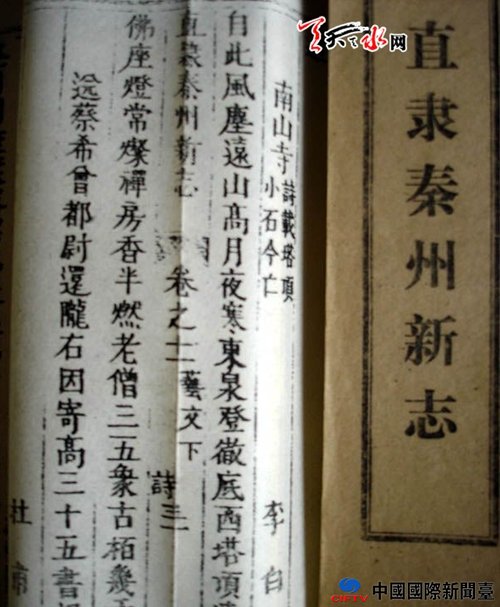 天天水网
直隶秦州新志
南山寺 詩載塔頂 李白
小石今亡
自此風塵遠山高月夜寒東泉登徹底西塔頂
秦州新志 卷之十二 藝文下 詩 三
佛座燈常燦禪房香半燃老僧三五衆古栢幾
送蔡希曾都尉還隴右因寄高三十五書 杜甫
CIFTV 中國國際新聞臺